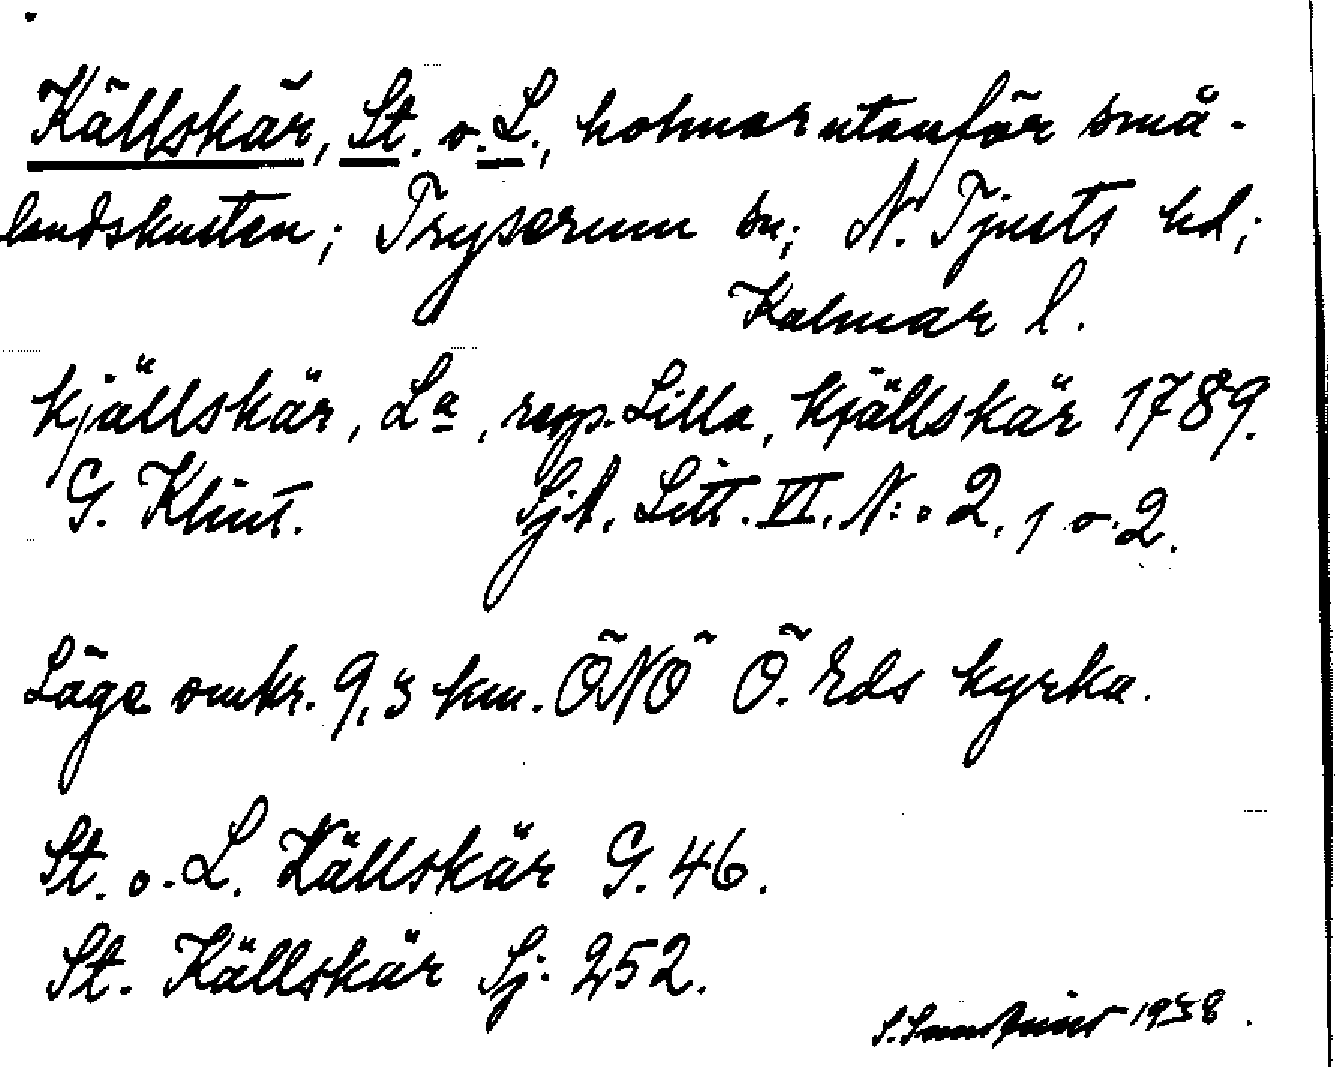 Källskär, St. o. L., holmar utanför små-
landskusten; Tryserum sn; N. Tjusts hd;
Kalmar l.
Kjällskär, La, resp. Lilla, Kjällskär 1789.
G. Klint. Sjk. Litt. VI. N:o 2. 1 o. 2.
Läge omkr. 9,3 km. ÖNÖ Ö. Eds kyrka.
St. o. L. Källskär G. 46.
St. Källskär Sj. 252.
1938.